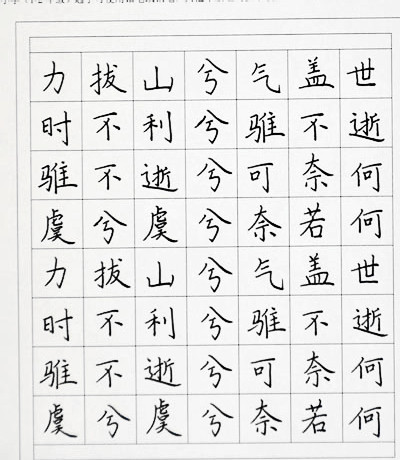 力拔山兮气盖世
时不利兮骓不逝
骓不逝兮可奈何
虞兮虞兮奈若何
力拔山兮气盖世
时不利兮骓不逝
骓不逝兮可奈何
虞兮虞兮奈若何